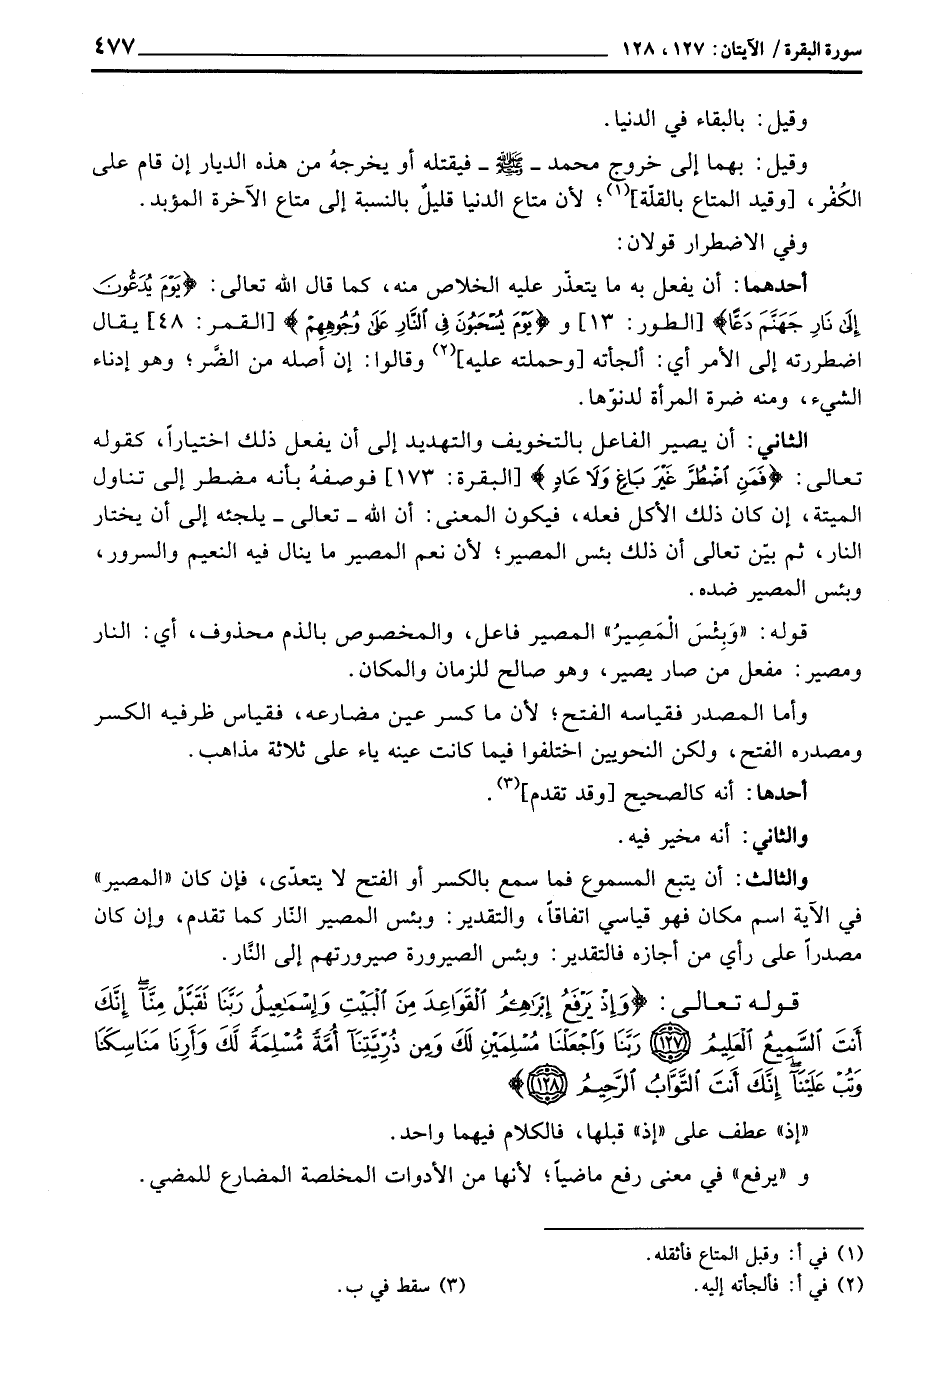 سورة البقرة/ الآيتان: ١٢٧، ١٢٨ ٤٧٧
وقيل: بالبقاء في الدنيا.
وقيل: بهما إلى خروج محمد ـ ﷺ ـ فيقتله أو يخرجهُ من هذه الديار إن قام على
الكُفْر، [وقيد المتاع بالقلّة](١)؛ لأن متاع الدنيا قليلٌ بالنسبة إلى متاع الآخرة المؤبد.
وفي الاضطرار قولان:
أحدهما: أن يفعل به ما يتعذّر عليه الخلاص منه، كما قال الله تعالى: ﴿يَوْمَ يُدَعُّونَ
إِلَىٰ نَارِ جَهَنَّمَ دَعًّا﴾ [الطور: ١٣] و ﴿يَوْمَ يُسْحَبُونَ فِي ٱلنَّارِ عَلَىٰ وُجُوهِهِمْ﴾ [القمر: ٤٨] يقال
اضطررته إلى الأمر أي: ألجأته [وحملته عليه](٢) وقالوا: إن أصله من الضَّر؛ وهو إدناء
الشيء، ومنه ضرة المرأة لدنوّها.
الثاني: أن يصير الفاعل بالتخويف والتهديد إلى أن يفعل ذلك اختياراً، كقوله
تعالى: ﴿فَمَنِ ٱضْطُرَّ غَيْرَ بَاغٍ وَلَا عَادٍ﴾ [البقرة: ١٧٣] فوصفهُ بأنه مضطر إلى تناول
الميتة، إن كان ذلك الأكل فعله، فيكون المعنى: أن الله ـ تعالى ـ يلجئه إلى أن يختار
النار، ثم بيّن تعالى أن ذلك بئس المصير؛ لأن نعم المصير ما ينال فيه النعيم والسرور،
وبئس المصير ضده.
قوله: «وَبِئْسَ الْمَصِيرُ» المصير فاعل، والمخصوص بالذم محذوف، أي: النار
ومصير: مفعل من صار يصير، وهو صالح للزمان والمكان.
وأما المصدر فقياسه الفتح؛ لأن ما كسر عين مضارعه، فقياس ظرفيه الكسر
ومصدره الفتح، ولكن النحويين اختلفوا فيما كانت عينه ياء على ثلاثة مذاهب.
أحدها: أنه كالصحيح [وقد تقدم](٣).
والثاني: أنه مخير فيه.
والثالث: أن يتبع المسموع فما سمع بالكسر أو الفتح لا يتعدّى، فإن كان «المصير»
في الآية اسم مكان فهو قياسي اتفاقاً، والتقدير: وبئس المصير النّار كما تقدم، وإن كان
مصدراً على رأي من أجازه فالتقدير: وبئس الصيرورة صيرورتهم إلى النَّار.
قوله تعالى: ﴿وَإِذْ يَرْفَعُ إِبْرَٰهِـۧمُ ٱلْقَوَاعِدَ مِنَ ٱلْبَيْتِ وَإِسْمَٰعِيلُ رَبَّنَا نَقَبَّلْ مِنَّآۖ إِنَّكَ
أَنتَ ٱلسَّمِيعُ ٱلْعَلِيمُ ١٢٧ رَبَّنَا وَٱجْعَلْنَا مُسْلِمَيْنِ لَكَ وَمِن ذُرِّيَّتِنَآ أُمَّةً مُّسْلِمَةً لَّكَ وَأَرِنَا مَنَاسِكَنَا
وَتُبْ عَلَيْنَآۖ إِنَّكَ أَنتَ ٱلتَّوَّابُ ٱلرَّحِيمُ ١٢٨﴾
«إذ» عطف على «إذ» قبلها، فالكلام فيهما واحد.
و «يرفع» في معنى رفع ماضياً؛ لأنها من الأدوات المخلصة المضارع للمضي.
(١) في أ: وقبل المتاع فأثقله.
(٢) في أ: فألجأته إليه. (٣) سقط في ب.